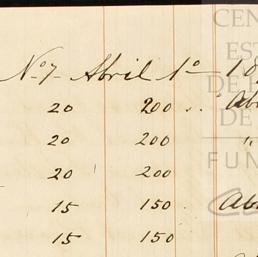 CEN
Nº 7 Abril 1º 18
EST
DE
20 200 .. Ab
DE
20 200 "
FUN
20 200
15 150 . Ab
15 150